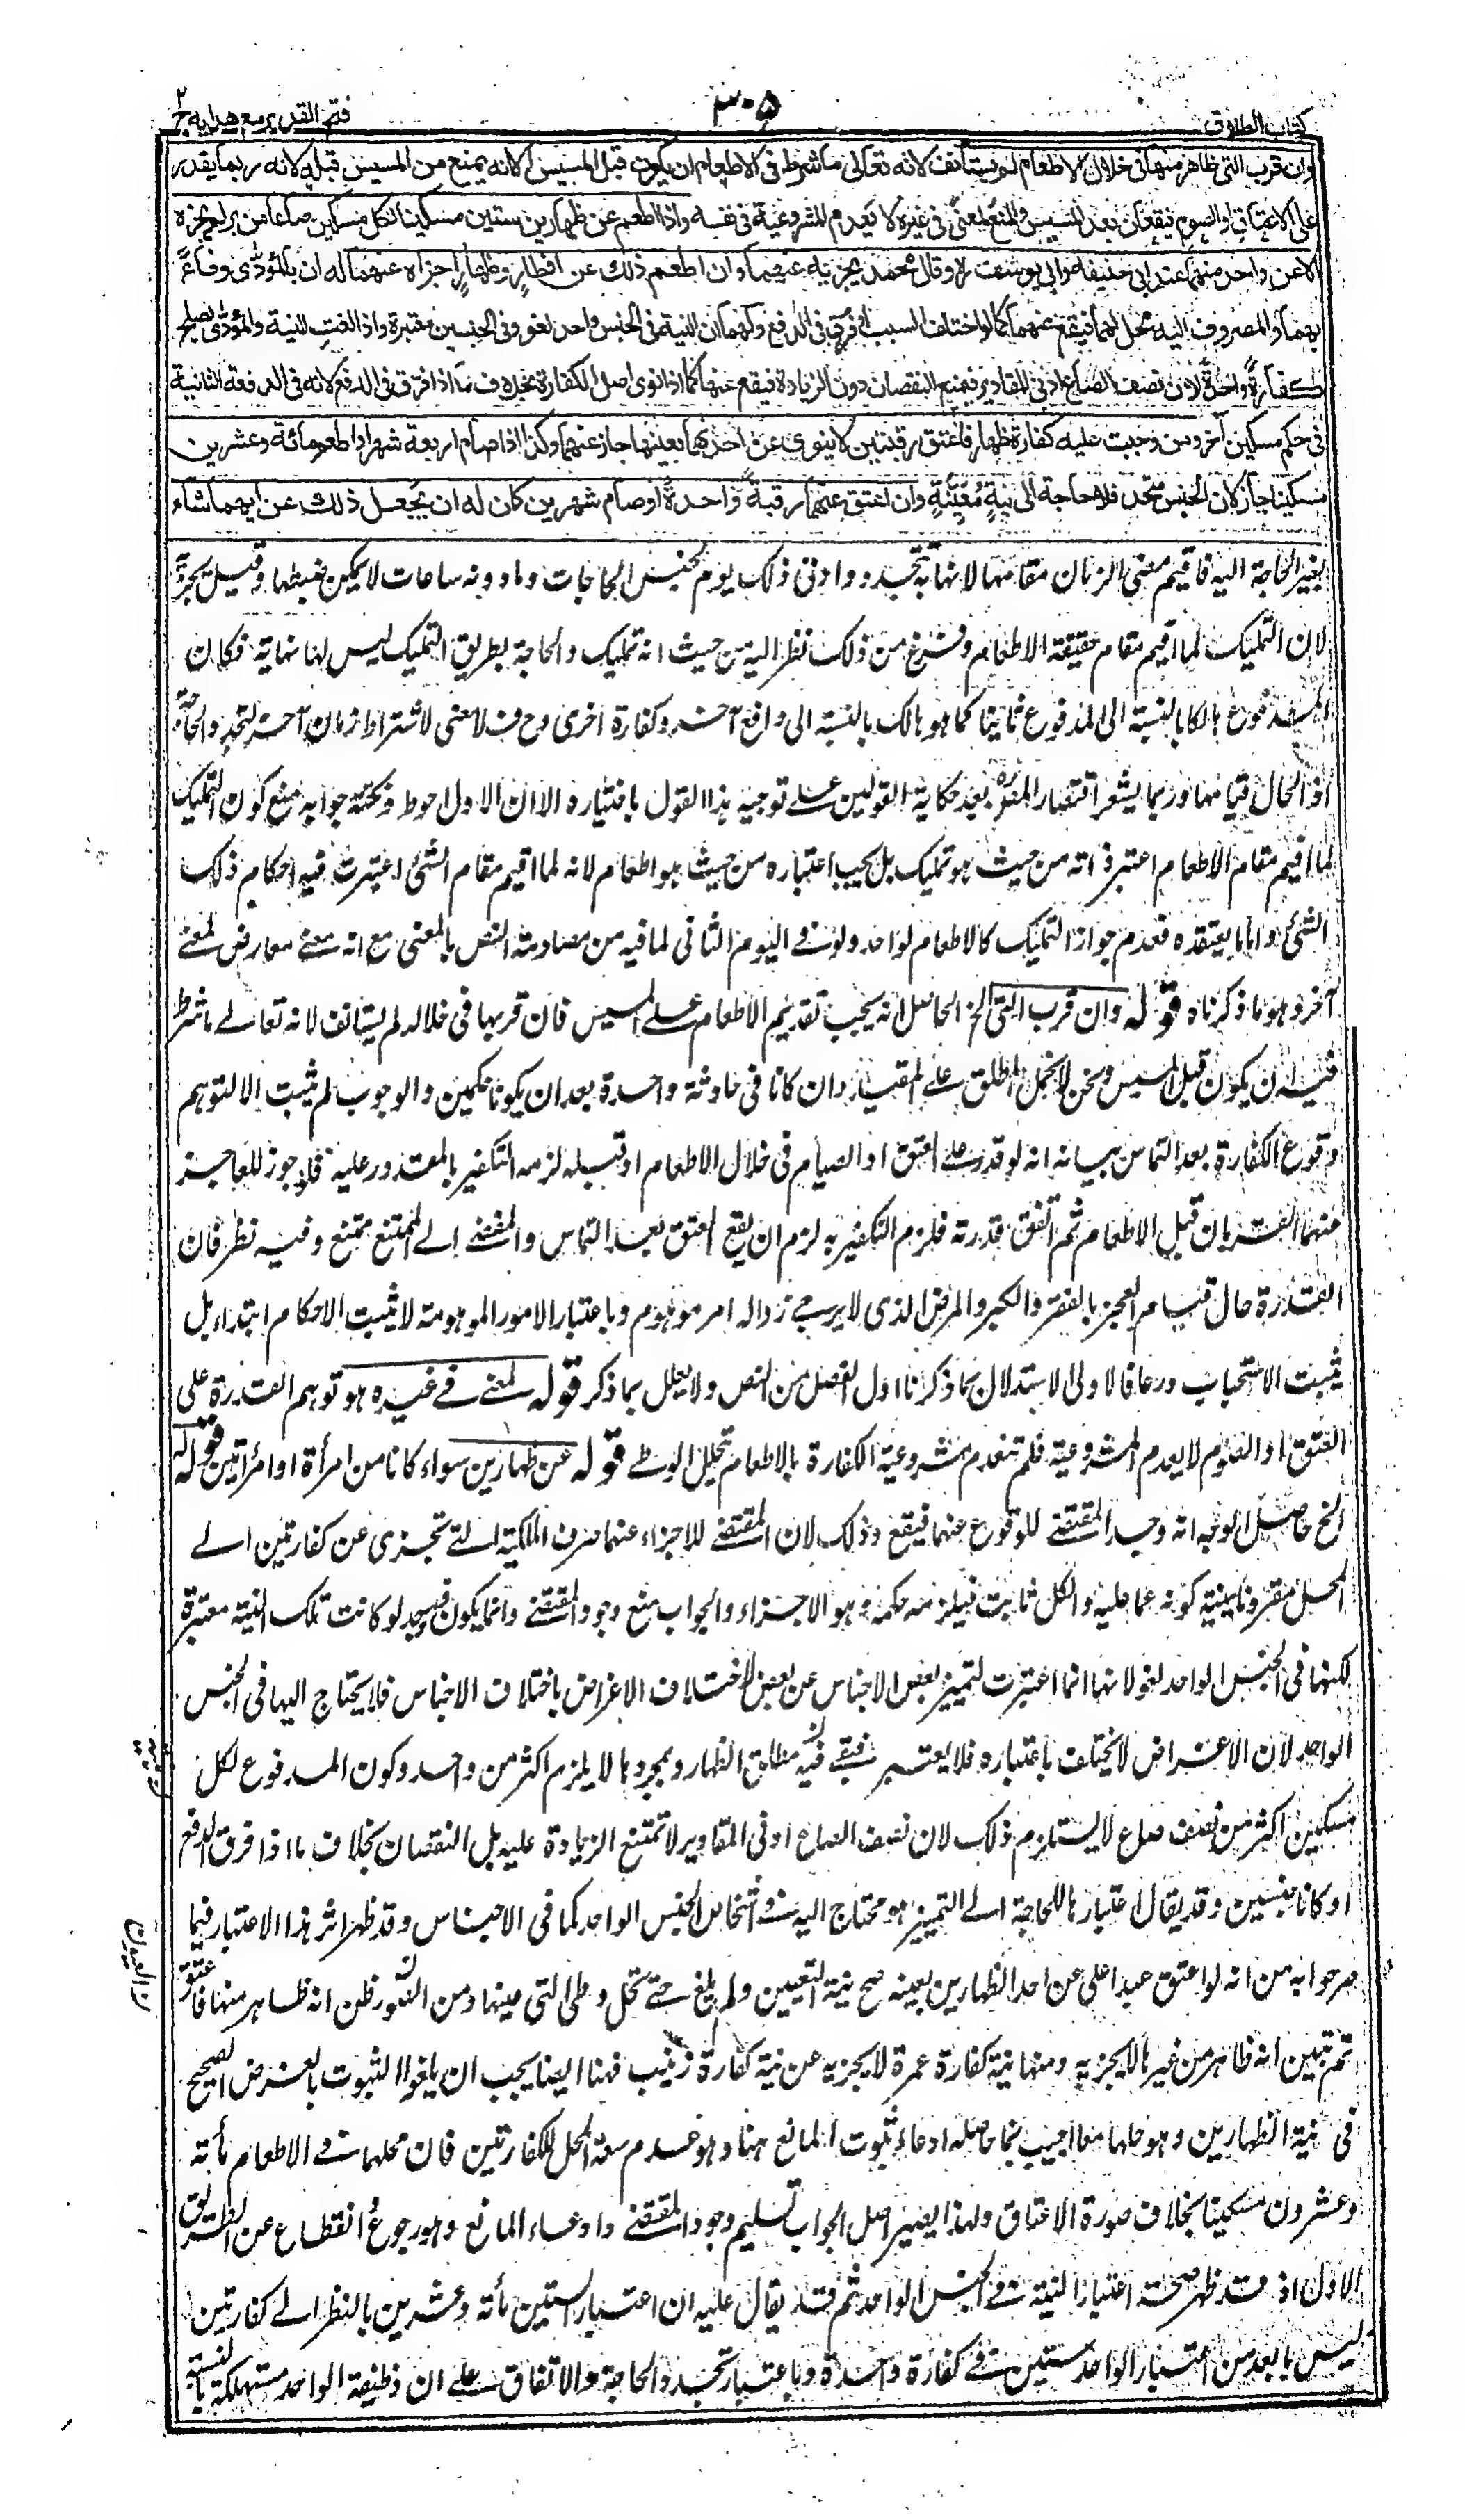 كتاب الطلاق
٣٠٥
فتح القدير مع هدايه ج ٢
وان قرب التى ظاهر منها فى خلال الاطعام لم يستأنف لانه تعالى ما شرط فى الاطعام ان يكون قبل المسيس الا انه يمنع من المسيس قبله لانه ربما يقدر
على الاعتاق او الصوم فيقعان بعد المسيس والمنع لمعنى فى غيره لا يعدم المشروعية فى نفسه واذا اطعم عن ظهارين ستين مسكينا لكل مسكين صاعا من بر لم يجزه
الا عن واحد منهما عند ابى حنيفة وابى يوسف رح وقال محمد يجزيه عنهما وان اطعم ذلك عن افطار وظهار اجزاه عنهما له ان بالمؤدّى وفاءً
بهما والمصروف اليه محل لهما فيقع عنهما كما لو اختلف السبب او فرق فى الدفع ولهما ان النية فى الجنس الواحد لغو وفى الجنسين معتبرة واذا لغت النية والمؤدّى يصلح
كفارةً واحدةً لان نصف الصاع ادنى المقادير فيمنع النقصان دون الزيادة فيقع عنها كما اذا نوى اصل الكفارة بخلاف ما اذا فرق فى الدفع لانه فى الدفعة الثانية
فى حكم مسكين آخر ومن وجبت عليه كفارة ظهار فاعتق رقبتين لا ينوى عن احدهما بعينها جاز عنهما وكذا اذا صام اربعة شهر او اطعم مائة وعشرين
مسكينا جاز لان الجنس متحد فلا حاجة الى نيةٍ مُعَيِّنةٍ وان اعتق عنهما رقبةً واحدةً او صام شهرين كان له ان يجعل ذلك عن ايهما شاء
بغير الحاجة اليه فاقيم مضى الزمان مقامها لانها به تتجدد وادنى ذلك يوم لجنس الحاجات وما دونه ساعات لا يمكن ضبطها وقيل يجزيه
لان التمليك لما اقيم مقام حقيقة الاطعام وفرغ من ذلك نظر اليه من حيث انه تمليك والحاجة بطريق التمليك ليس لها نهاية فكان
المدفوع هالكا بالنسبة الى المدفوع ثانيا كما هو هالك بالنسبة الى دافع آخر وكفارة اخرى وح فلا معنى لاشتراط زمان آخر لتجدد الحاجة
اذ الحال قيامها وربما يشعر اقتصار المصنف بعد حكاية القولين على توجيه هذا القول باختياره الا ان الاول احوط ونكتة جوابه منع كون التمليك
لما اقيم مقام الاطعام اعتبر ذاته من حيث هو تمليك بل يجب اعتباره من حيث هو اطعام لانه لما اقيم مقام الشئ اعتبرت فيه احكام ذلك
الشئ وانا بايعتقده فعدم جواز التمليك كالاطعام لواحد ولو فى اليوم الثانى لما فيه من مصادمة النص بالمعنى مع انه معنى معارض لمعنى
آخر وهو ما ذكرناه قوله وان قرب التى الخ الحاصل انه يجب تقديم الاطعام على المسيس فان قربها فى خلاله لم يستانف لانه تعالى ما شرط
فيه ان يكون قبل المسيس ونحن لا نحمل المطلق على المقيد وان كانا فى حادثة واحدة بعد ان يكونا حكمين والوجوب لم يثبت الا لتوهم
وقوع الكفارة بعد التماس بيانه انه لو قدر على العتق او الصيام فى خلال الاطعام او قبله لزمه التكفير بالمقدور عليه فلو جوز للعاجز
عنهما القربان قبل الاطعام ثم اتفق قدرته فلزم التكفير به لزم ان يقع العتق بعد التماس والمفضى الى الممتنع ممتنع وفيه نظر فان
القدرة حال قيام العجز بالفقر والكبر والمرض الذى لا يرجى زواله امر موهوم وباعتبار الامور الموهومة لا يثبت الاحكام ابتداء بل
يثبت الاستحباب ورعا فالاولى الاستدلال بما ذكرنا اول الفصل من النص ولا يعلل بما ذكر قوله لمعنى فى غيره هو توهم القدرة على
العتق او الصوم لا يعدم المشروعية فلم تنعدم مشروعية الكفارة بالاطعام بتخلل الوطى قوله عن ظهارين سواء كانا من امرأة او امرأتين قوله له
الخ حاصل الوجه انه وجد المقتضى للوقوع عنهما فيقع وذلك لان المقتضى للاجزاء عنهما صرف الكمية التى تجزى عن كفارتين الى
المحل مقرونا بنية كونه عما عليه والكل ثابت فيلزمه حكمه وهو الاجزاء والجواب منع وجود المقتضى وانما يكون قد وجد لو كانت تلك النية معتبرة
لكنها فى الجنس الواحد لغو لانها انما اعتبرت لتمييز بعض الاجناس عن بعض لاختلاف الاغراض باختلاف الاجناس فلا يحتاج اليها فى الجنس
الواحد لان الاغراض لا يختلف باعتباره فلا يعتبر فبقى فيه مطلق الظهار وبمجردها لا يلزم اكثر من واحد وكون المدفوع لكل
مسكين اكثر من نصف صاع لا يستلزم ذلك لان نصف الصاع ادنى المقادير لا تمتنع الزيادة عليه بل النقصان بخلاف ما اذا فرق الدفع
او كانا جنسين وقد يقال اعتبارها للحاجة الى التمييز هو محتاج اليه فى اشخاص الجنس الواحد كما فى الاجناس وقد ظهر اثر هذا الاعتبار فيما
صرحوا به من انه لو اعتق عبدا على عن احد الظهارين بعينه صح نية التعيين ولم يلغ حتى تحل وطى التى عينها ومن الصور ظن انه ظاهر منها فاعتق
ثم تبين انه ظاهر من غيرها لا يجزيه ومنها نية كفارة عمرة لا يجزيه عن نية كفارة زينب فهنا ايضا يجب ان يلغوا لثبوت الغرض الصحيح
فى نية الظهارين وهو حلها معا اجيب بما حاصله ادعاء ثبوت المانع هنا وهو عدم سعة المحل للكفارتين فان محلهما فى الاطعام مأته
وعشرون مسكينا بخلاف صورة الاعتاق ولهذا يصير اصل الجواب تسليم وجود المقتضى وادعاء المانع وهو رجوع انقطاع عن الطريق
الاول اذ قد ظهر صحة اعتبار النية فى الجنس الواحد ثم قد يقال عليه ان اعتبار الستين مأته وعشرين بالنظر الى كفارتين
ليس بابعد من اعتبار الواحد ستين فى كفارة واحدة وباعتبار تجدد الحاجة والاتفاق على ان وظيفة الواحد مستهلكة بالنسبة